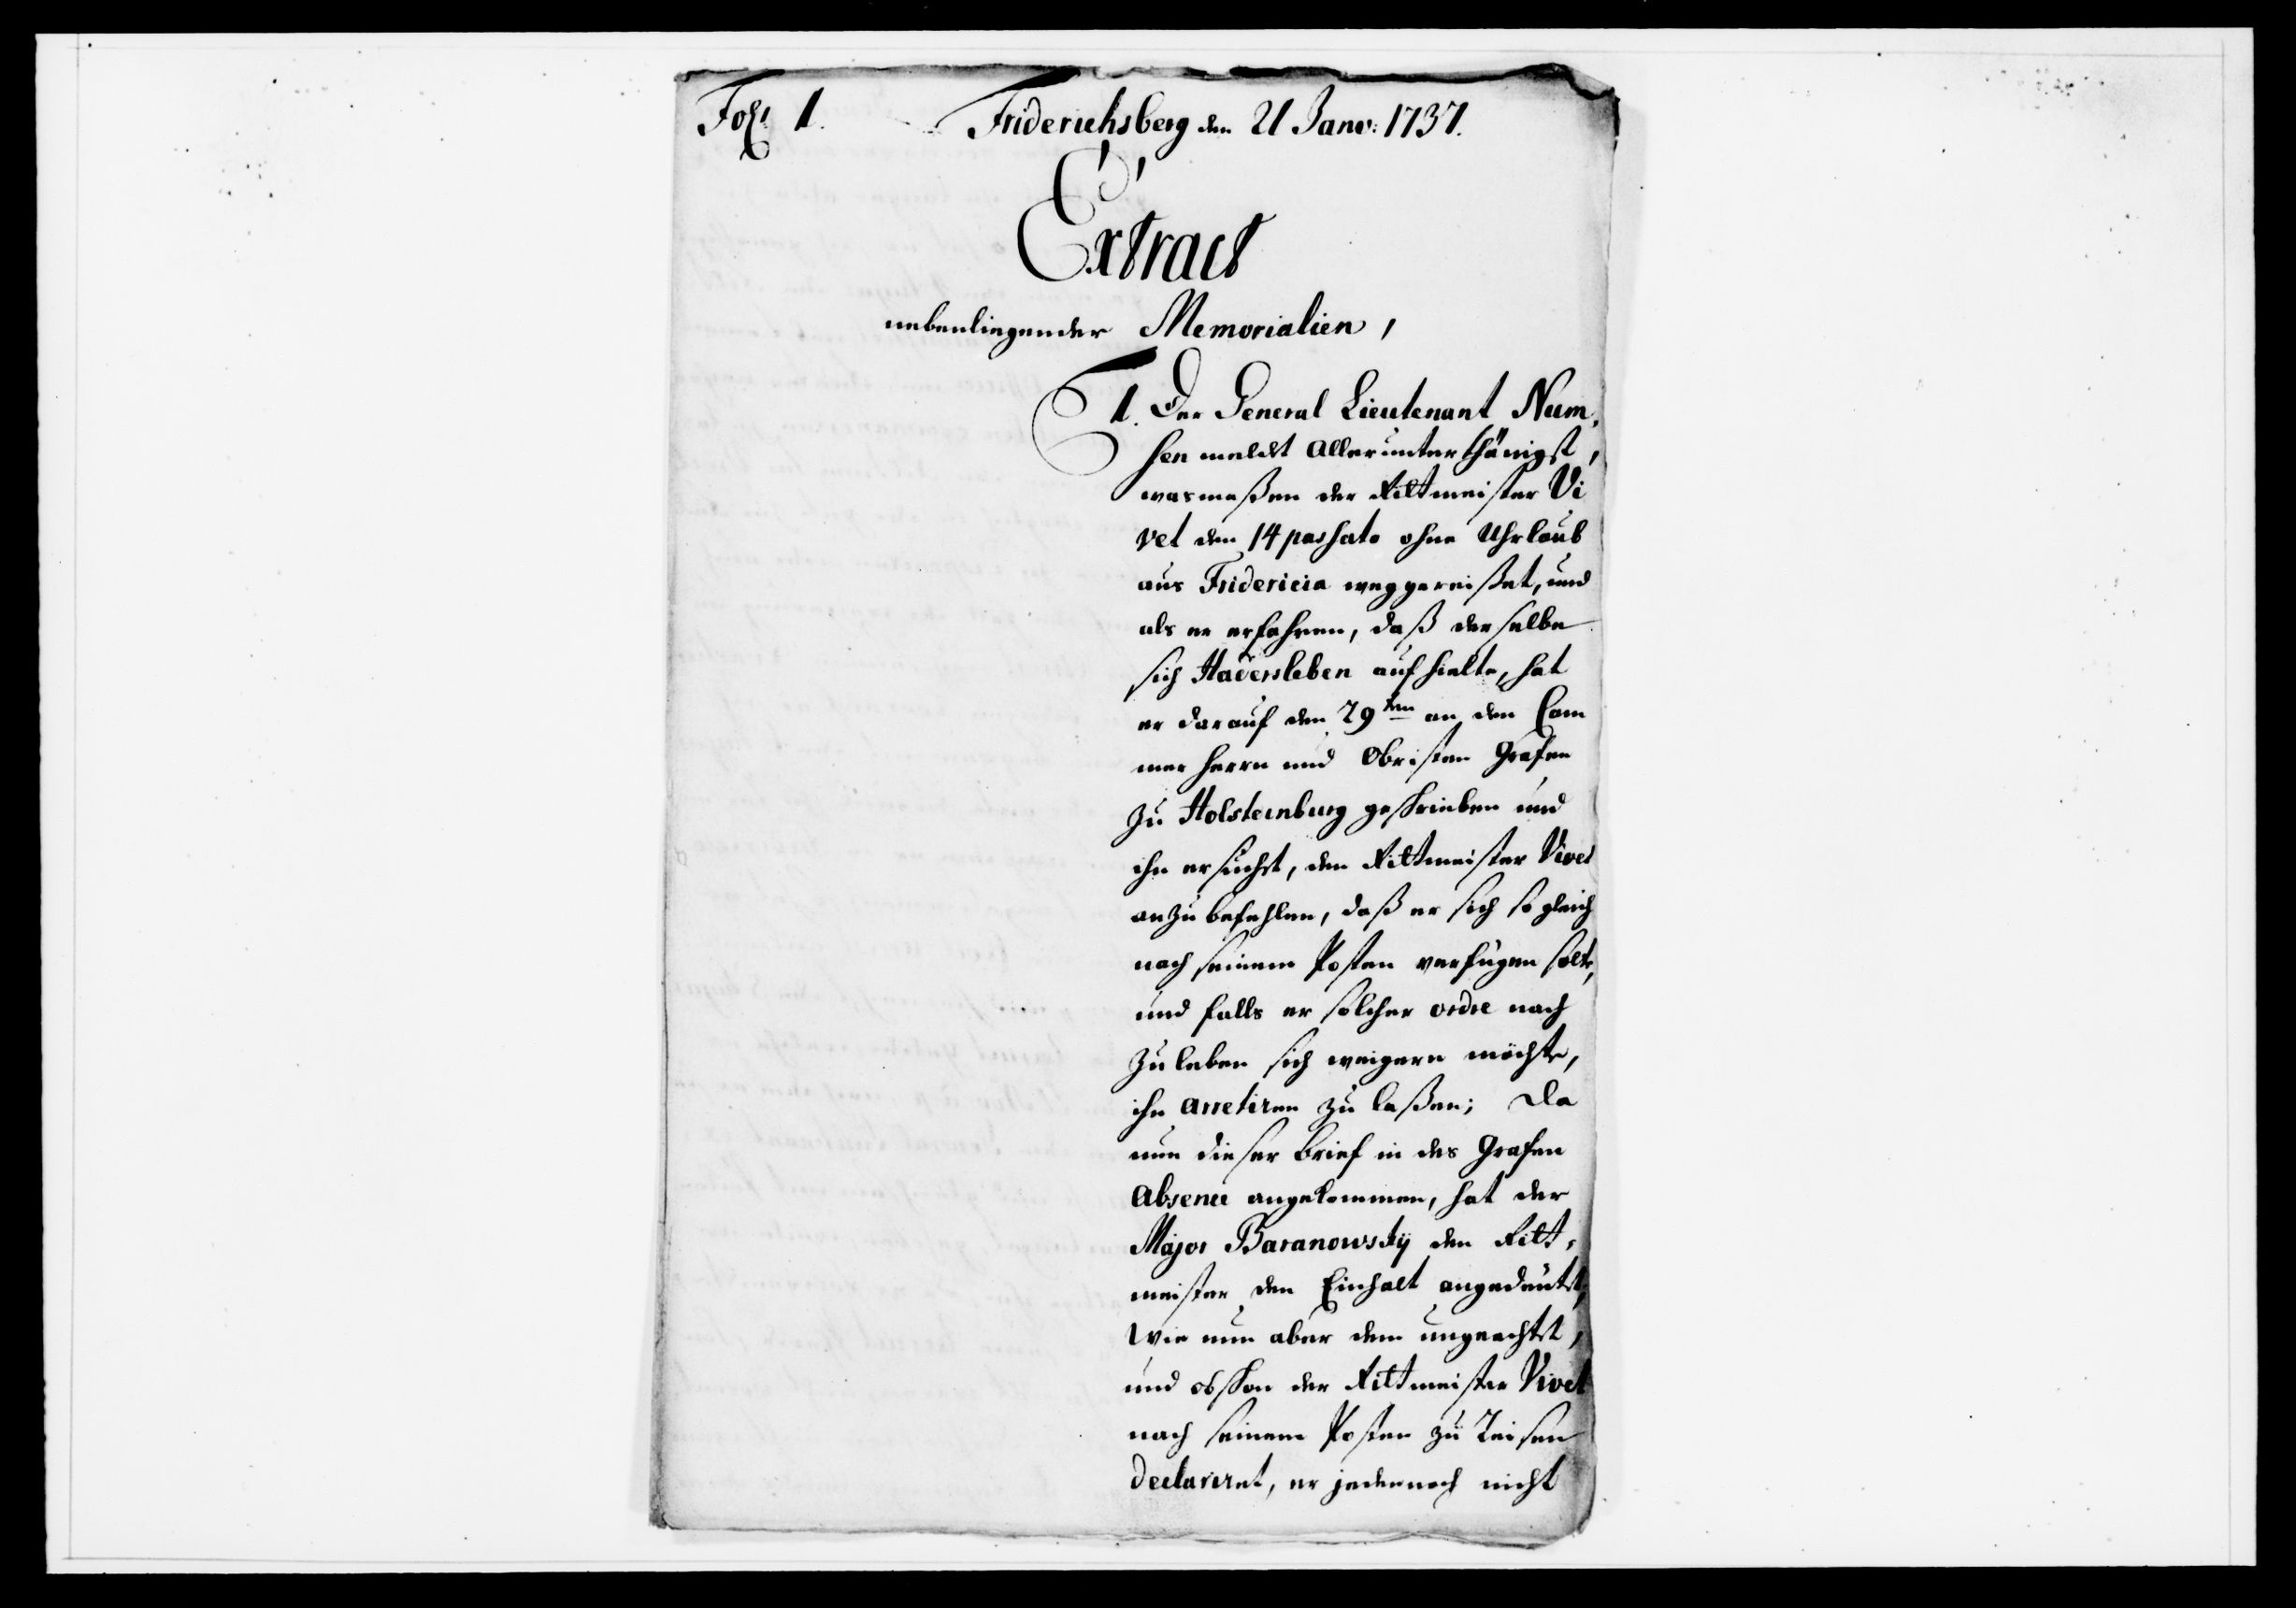 Fol. 1. Friderichsberg den 21 Janv: 1737.
Extract
nebenliegender Memorialien,
1. Der General Lieutenant Num„
sen meldet allerunterthänigst,
wasmaßen der Rittmeister Vi
vet den 14 passato ohne Uhrlaub
aus Fridericia weggereißet, und
als er erfahren, daß derselbe
sich Hadersleben aufhielte, hat
er darauf den 29ten an den Cam
mer Herrn und Obristen Grafen
zu Holsteinburg geschrieben und
ihn ersucht, den Rittmeister Vivet
anzubefehlen, daß er sich so gleich
nach seinem Posten verfügen solte,
und falls er solcher ordre nach
zu leben sich weigern möchte,
ihn arretiren zu laßen; Da
nun dieser Brief in des Grafen
Absence angekommen, hat der
Major Baranowsky den Ritt„
meister den Einhalt angedeutet,
Wie nun aber dem ungeachtet,
und obschon der Rittmeister Vivet
nach seinem Posten zu Reisen
declariret, er jedennoch nicht